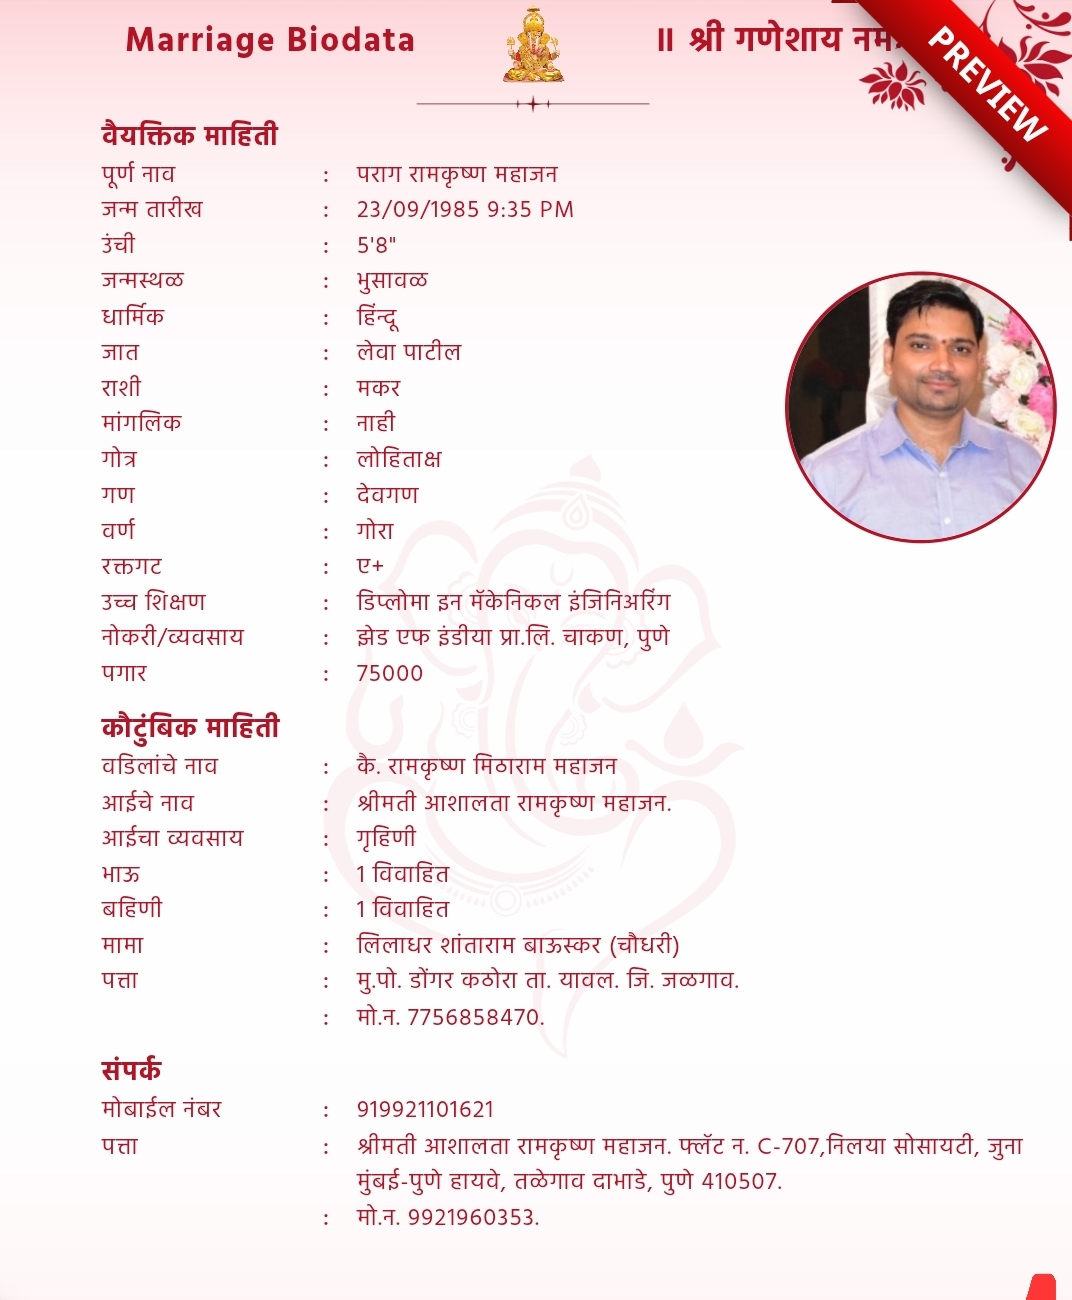 Marriage Biodata
॥ श्री गणेशाय
PREVIEW
वैयक्तिक माहिती
पूर्ण नाव : पराग रामकृष्ण महाजन
जन्म तारीख : 23/09/1985 9:35 PM
उंची : 5'8"
जन्मस्थळ : भुसावळ
धार्मिक : हिंन्दू
जात : लेवा पाटील
राशी : मकर
मांगलिक : नाही
गोत्र : लोहिताक्ष
गण : देवगण
वर्ण : गोरा
रक्तगट : ए+
उच्च शिक्षण : डिप्लोमा इन मॅकेनिकल इंजिनिअरिंग
नोकरी/व्यवसाय : झेड एफ इंडीया प्रा.लि. चाकण, पुणे
पगार : 75000
कौटुंबिक माहिती
वडिलांचे नाव : कै. रामकृष्ण मिठाराम महाजन
आईचे नाव : श्रीमती आशालता रामकृष्ण महाजन.
आईचा व्यवसाय : गृहिणी
भाऊ : 1 विवाहित
बहिणी : 1 विवाहित
मामा : लिलाधर शांताराम बाऊस्कर (चौधरी)
पत्ता : मु.पो. डोंगर कठोरा ता. यावल. जि. जळगाव.
: मो.न. 7756858470.
संपर्क
मोबाईल नंबर : 919921101621
पत्ता : श्रीमती आशालता रामकृष्ण महाजन. फ्लॅट न. C-707,निलया सोसायटी, जुना
मुंबई-पुणे हायवे, तळेगाव दाभाडे, पुणे 410507.
: मो.न. 9921960353.